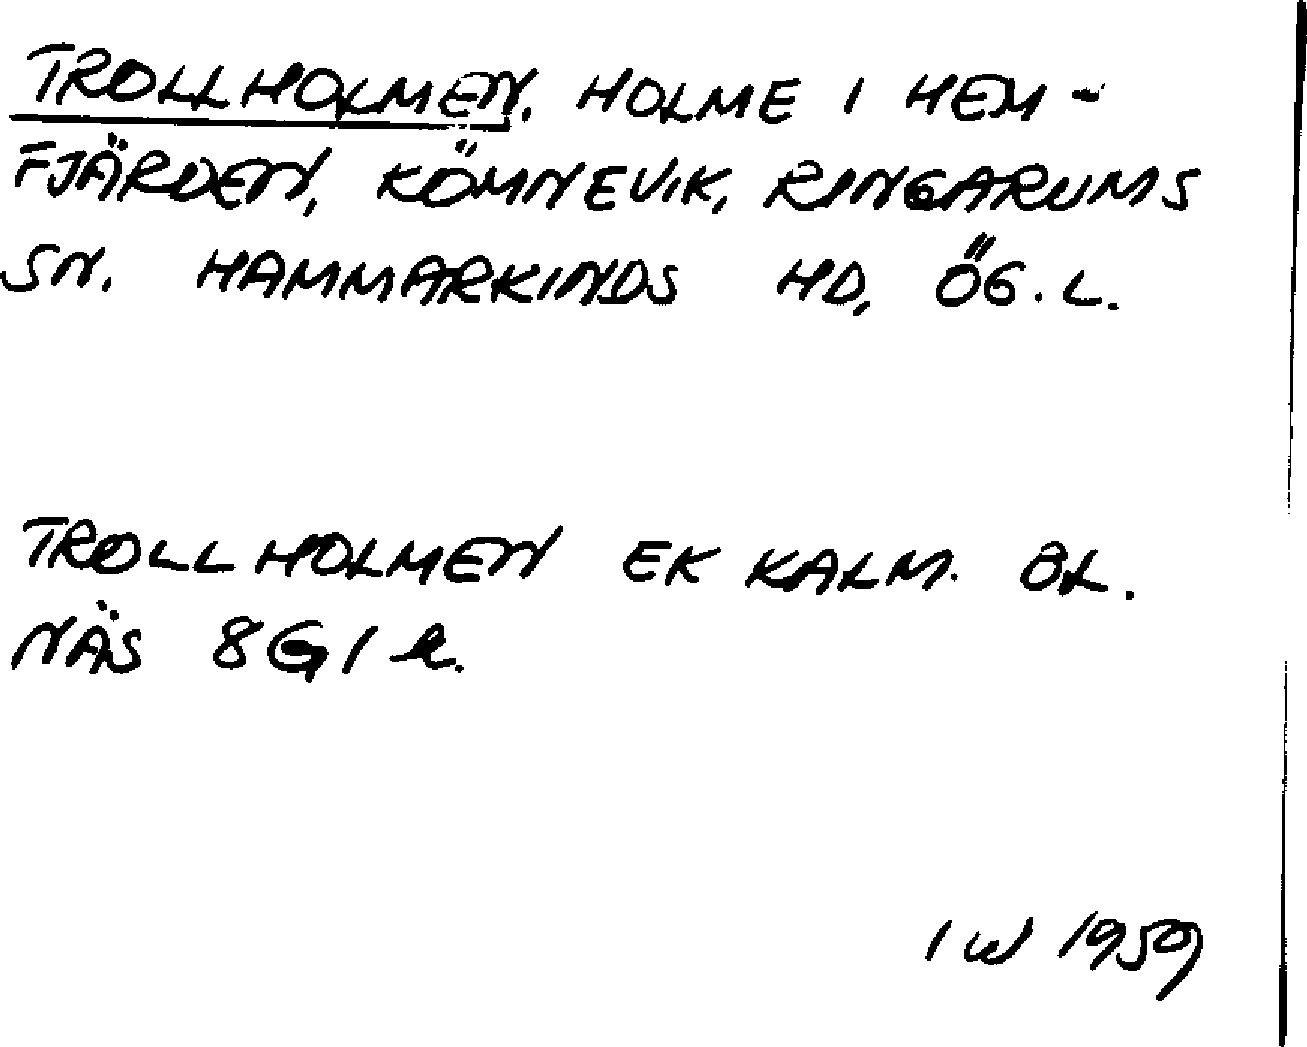 TROLLHOLMEN. HOLME I HEM-
FJÄRDEN, KÖMNEVIK, RINGARUMS
SN. HAMMARKINDS HD, ÖG. L.
TROLLHOLMEN EK KALM. BL.
NÄS 8G1
IW 1959